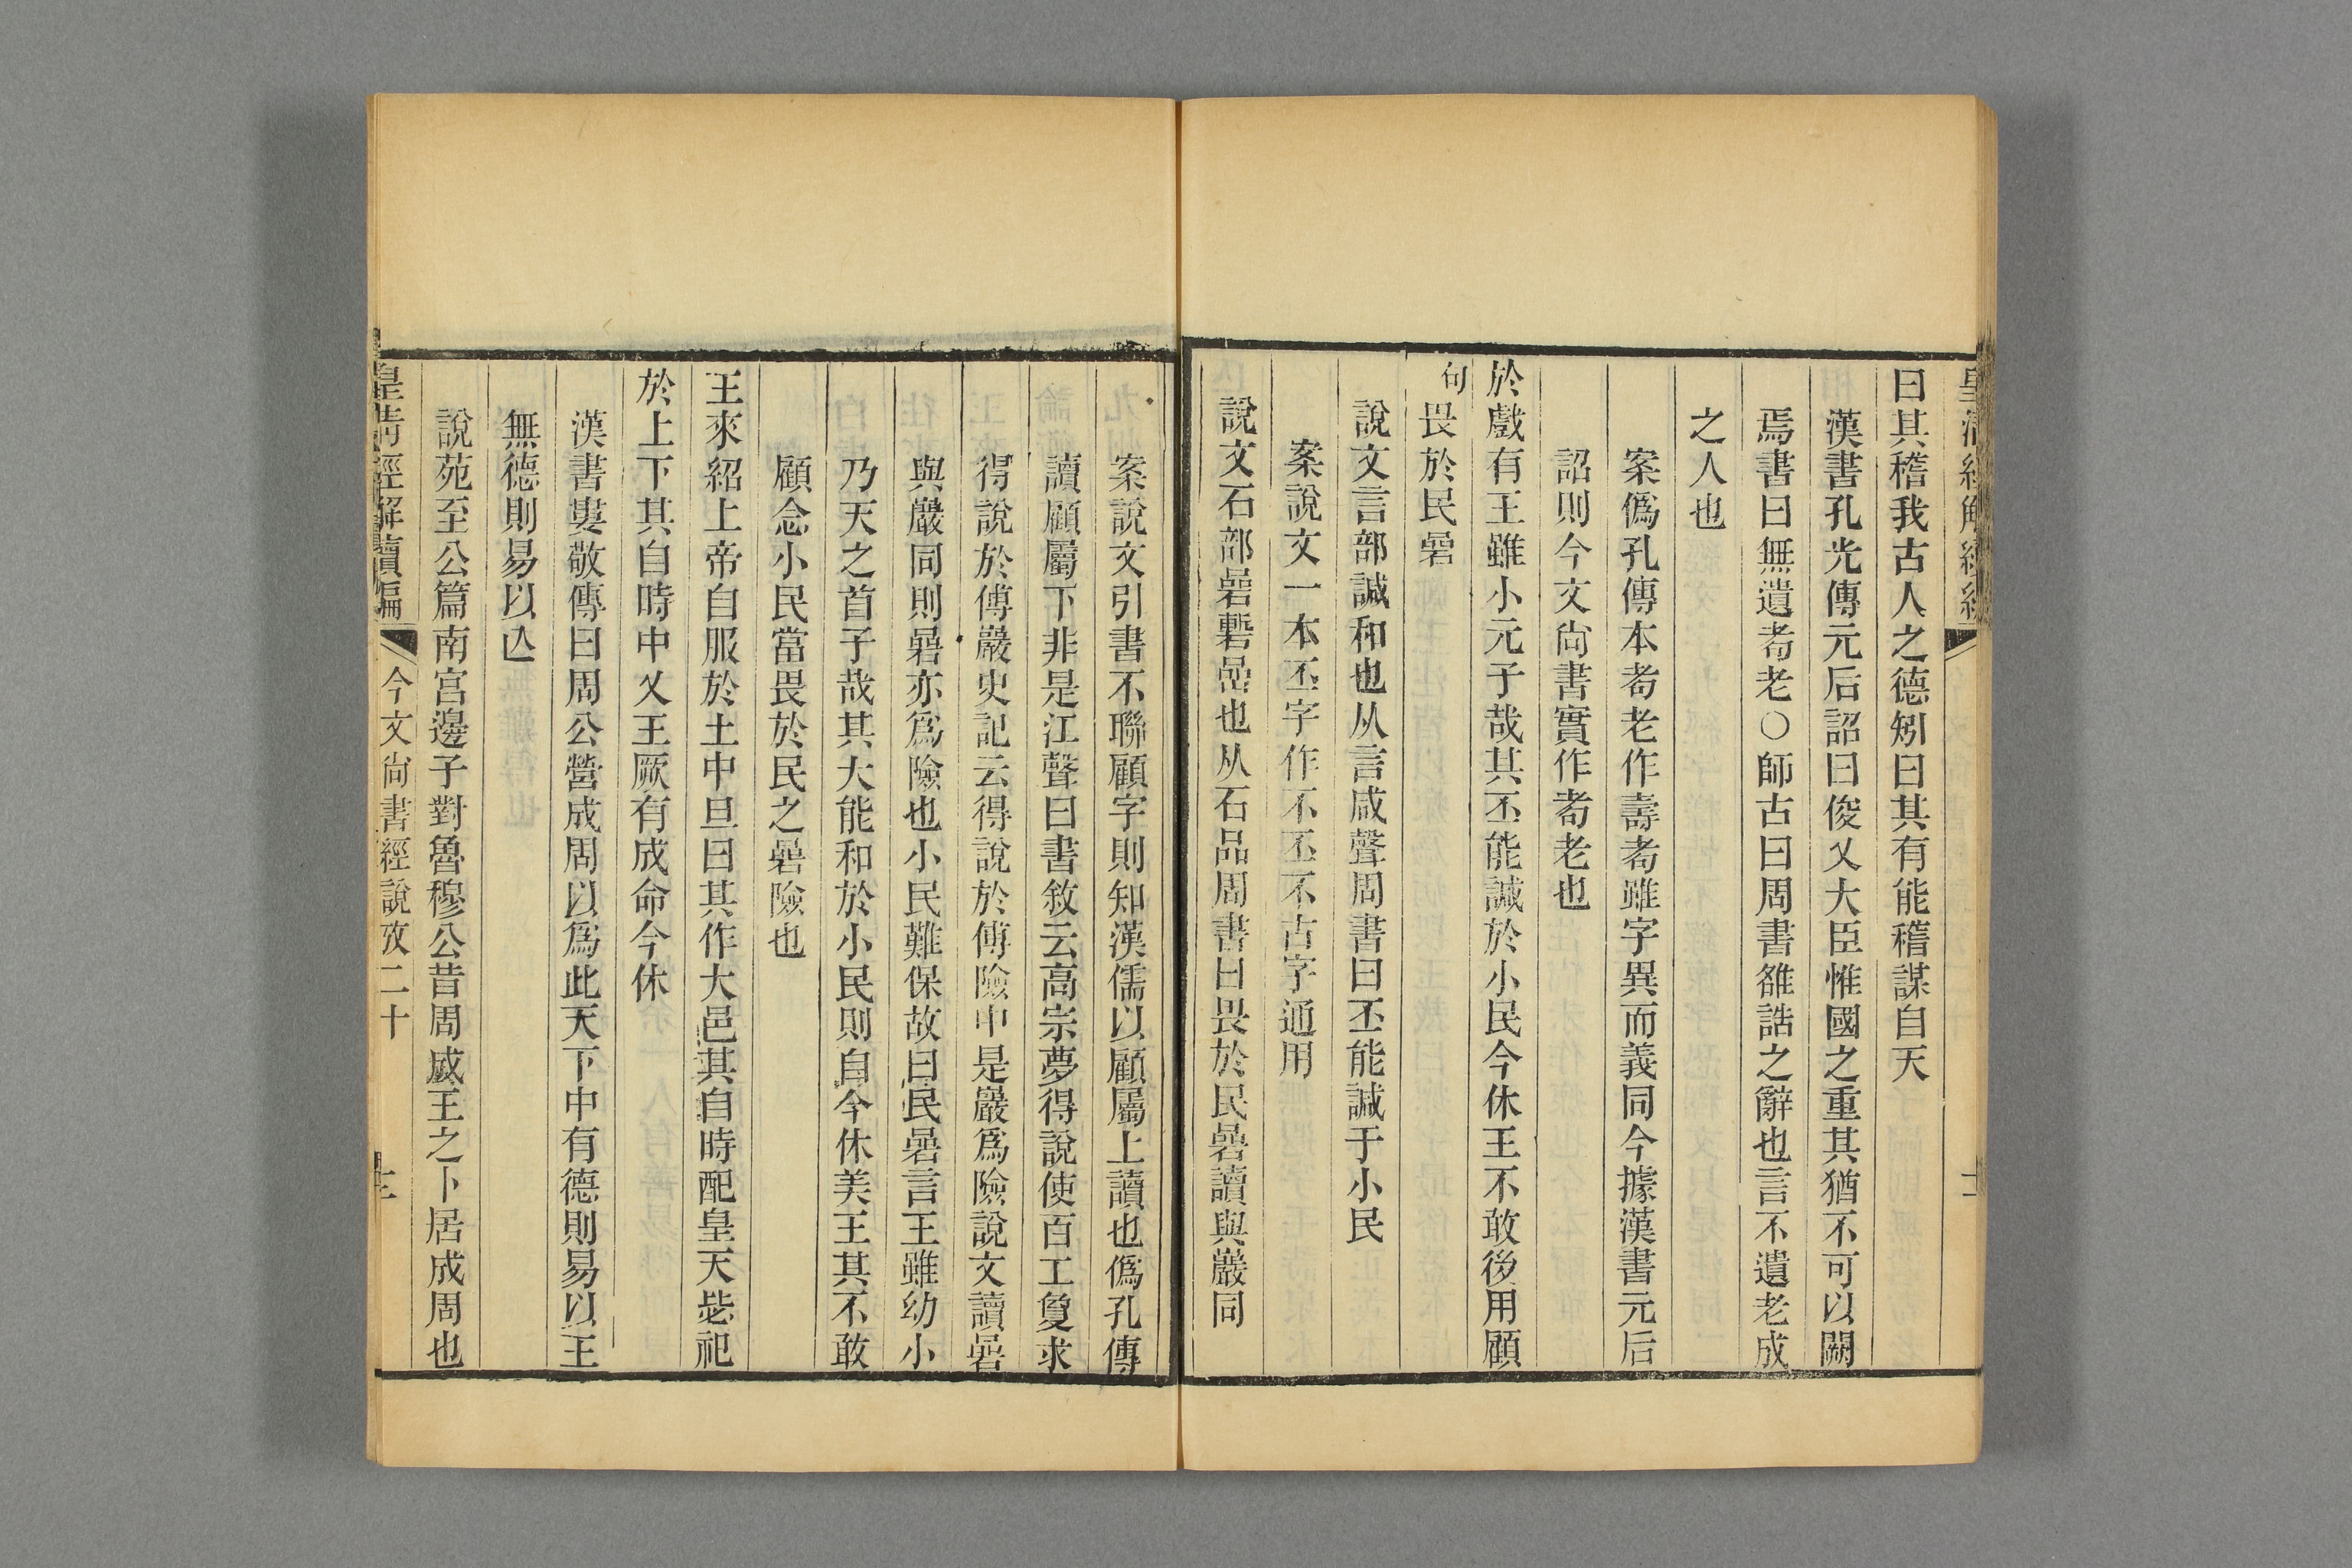 曰其稽我古人之德矧曰其有能稽謀自天
漢書孔光傳元后詔曰俊乂大臣惟國之重其猶不可以闕
焉書曰無遺耇老○師古曰周書雒誥之辭也言不遺老成
之人也
案僞孔傳本耇老作壽耇雖字異而義同今據漢書元后
詔則今文尙書實作耇老也
於戲有王雖小元子哉其丕能諴於小民今休王不敢後用顧
句畏於民碞
說文言部諴和也从言咸聲周書曰丕能諴于小民
案說文一本丕字作不丕不古字通用
說文石部碞磛嵒也从石品周書曰畏於民碞讀與巖同
案說文引書不聯顧字則知漢儒以顧屬上讀也僞孔傳
讀顧屬下非是江聲曰書敘云高宗夢得說使百工夐求
得說於傅巖史記云得說於傅險中是巖爲險說文讀碞
與巖同則碞亦爲險也小民難保故曰民碞言王雖幼小
乃天之首子哉其大能和於小民則自今休美王其不敢
顧念小民當畏於民之碞險也
王來紹上帝自服於土中旦曰其作大邑其自時配皇天毖祀
於上下其自時中乂王厥有成命今休
漢書婁敬傳曰周公營成周以爲此天下中有德則易以王
無德則易以亾
說苑至公篇南宮邊子對魯穆公昔周成王之卜居成周也
皇淸經解續編 今文尙書經說攷二十